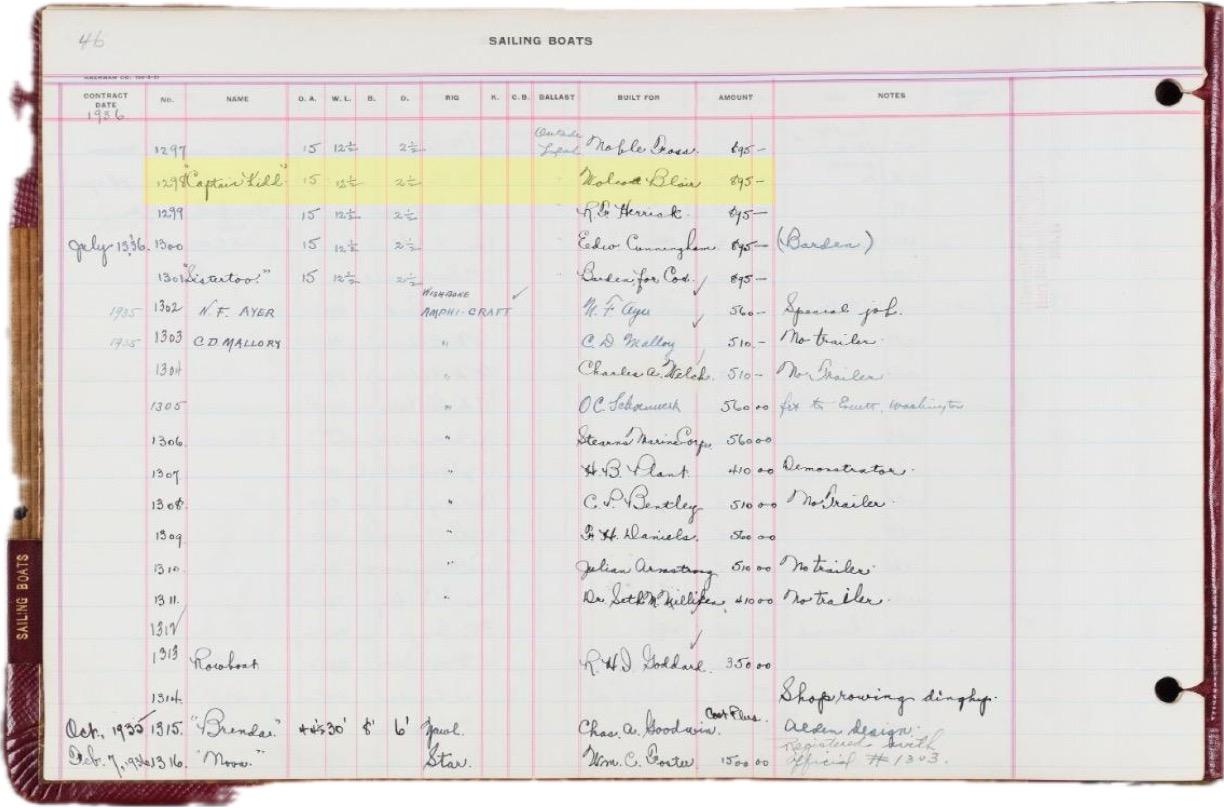 46
SAILING BOATS
CONTRACT DATE NO. NAME O. A. W. L. B. D. RIG K. C. B. BALLAST BUILT FOR AMOUNT NOTES
1936
1297 15 12½ 2½ Outside Lead Noble Foss. 895—
1298 "Captain Kidd" 15 12½ 2½ " Wolcott Blair 895—
1299 15 12½ 2½ R. F. Herrick. 895—
July 1936. 1300 15 12½ 2½ Edw Cunningham 895— (Barden)
1301 "Sistertoo." 15 12½ 2½ Barden, for Cox. ✓ 895—
WISHBONE
1935 1302 N. F. AYER AMPHI-CRAFT ✓ N. F. Ayer 560— Special job.
1935 1303 C D MALLORY " C. D. Mallory ✓ 510.— No trailer.
1304 " Charles A. Welch. ✓ 510— No Trailer
1305 " O C. 560 00 Washington
1306. " Stearns Marine Corp. 560 00
1307 " H. B. Plant. 410 00 Demonstrator.
1308. " C. P. Bentley 510 00 No Trailer.
1309 " F. H. Daniels. 560 00
1310 " Julian Armstrong 510 00 No trailer.
1311. " Dr. Seth M. Milliken, 410 00 No trailer.
1312 ✓
1313 Rowboat R. H. I. Goddard. ✓ 350 00
1314. Shop rowing dinghy.
Oct, 1935 1315. "Brenda." 44½ 30' 8' 6' Yawl. Chas. A. Goodwin. Cost Plus. Alden design.
Feb. 7, 1936 1316. "Nova." Star. Wm. C. Foster 1500 00 Registered with
official # 1303.
SAILING BOATS